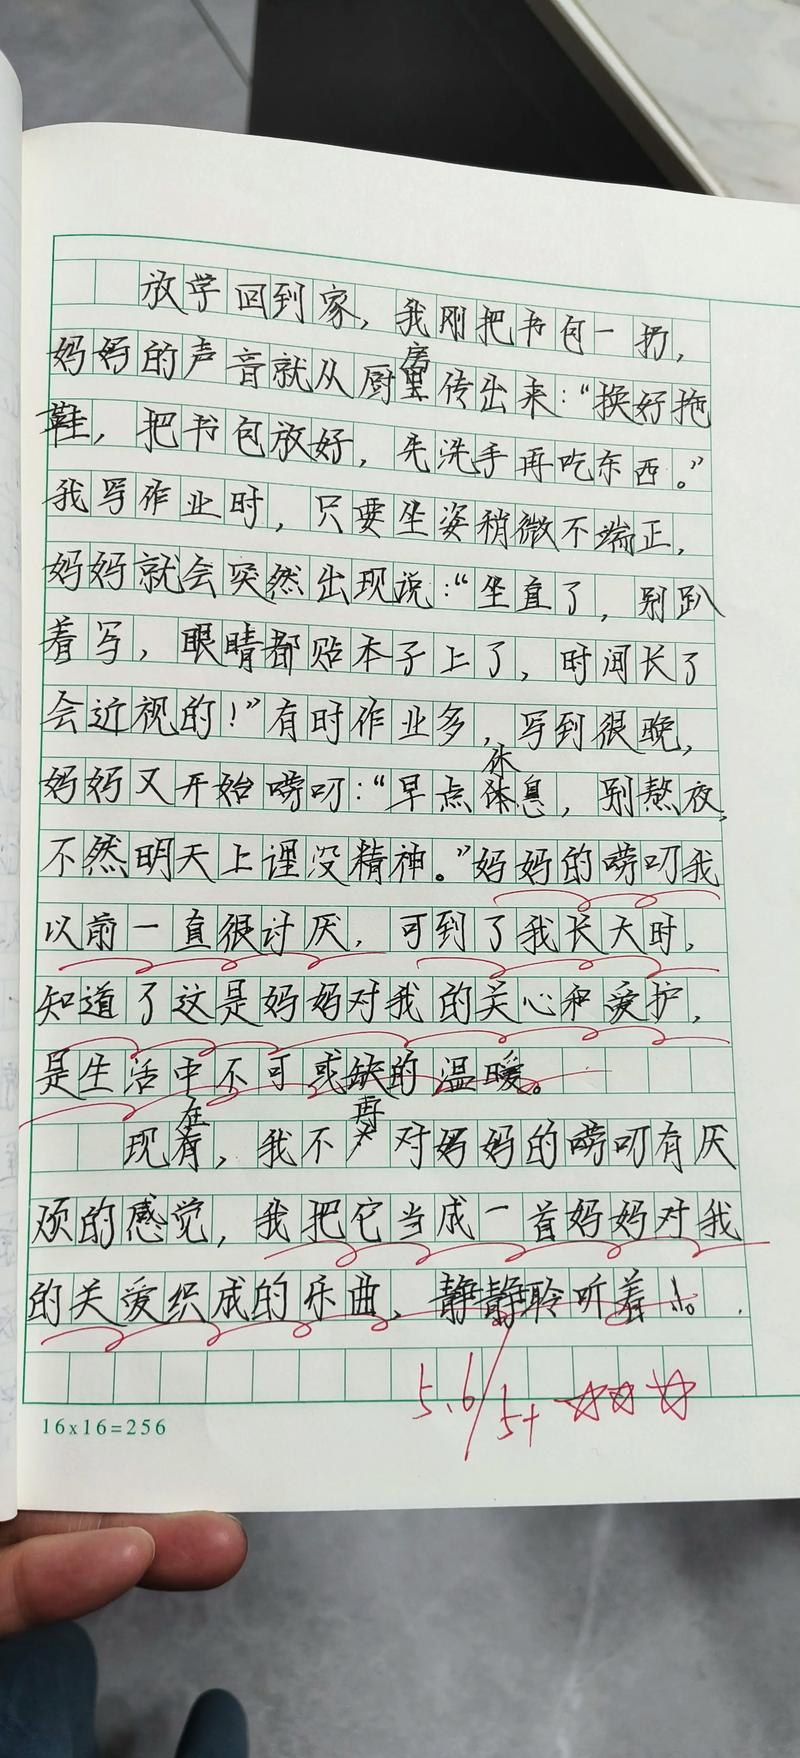 放学回到家，我刚把书包一扔，
妈妈的声音就从厨房里传出来：“换好拖
鞋，把书包放好，先洗手再吃东西。”
我写作业时，只要坐姿稍微不端正，
妈妈就会突然出现说：“坐直了，别趴
着写，眼睛都贴本子上了，时间长了
会近视的！”有时作业多，写到很晚，
妈妈又开始唠叨：“早点休息，别熬夜，
不然明天上课没精神。”妈妈的唠叨我
以前一直很讨厌，可到了我长大时，
知道了这是妈妈对我的关心和爱护，
是生活中不可或缺的温暖。
现在，我不再对妈妈的唠叨有厌
烦的感觉，我把它当成一首妈妈对我
的关爱织成的乐曲，静静聆听着。
5.6/5+
16x16=256